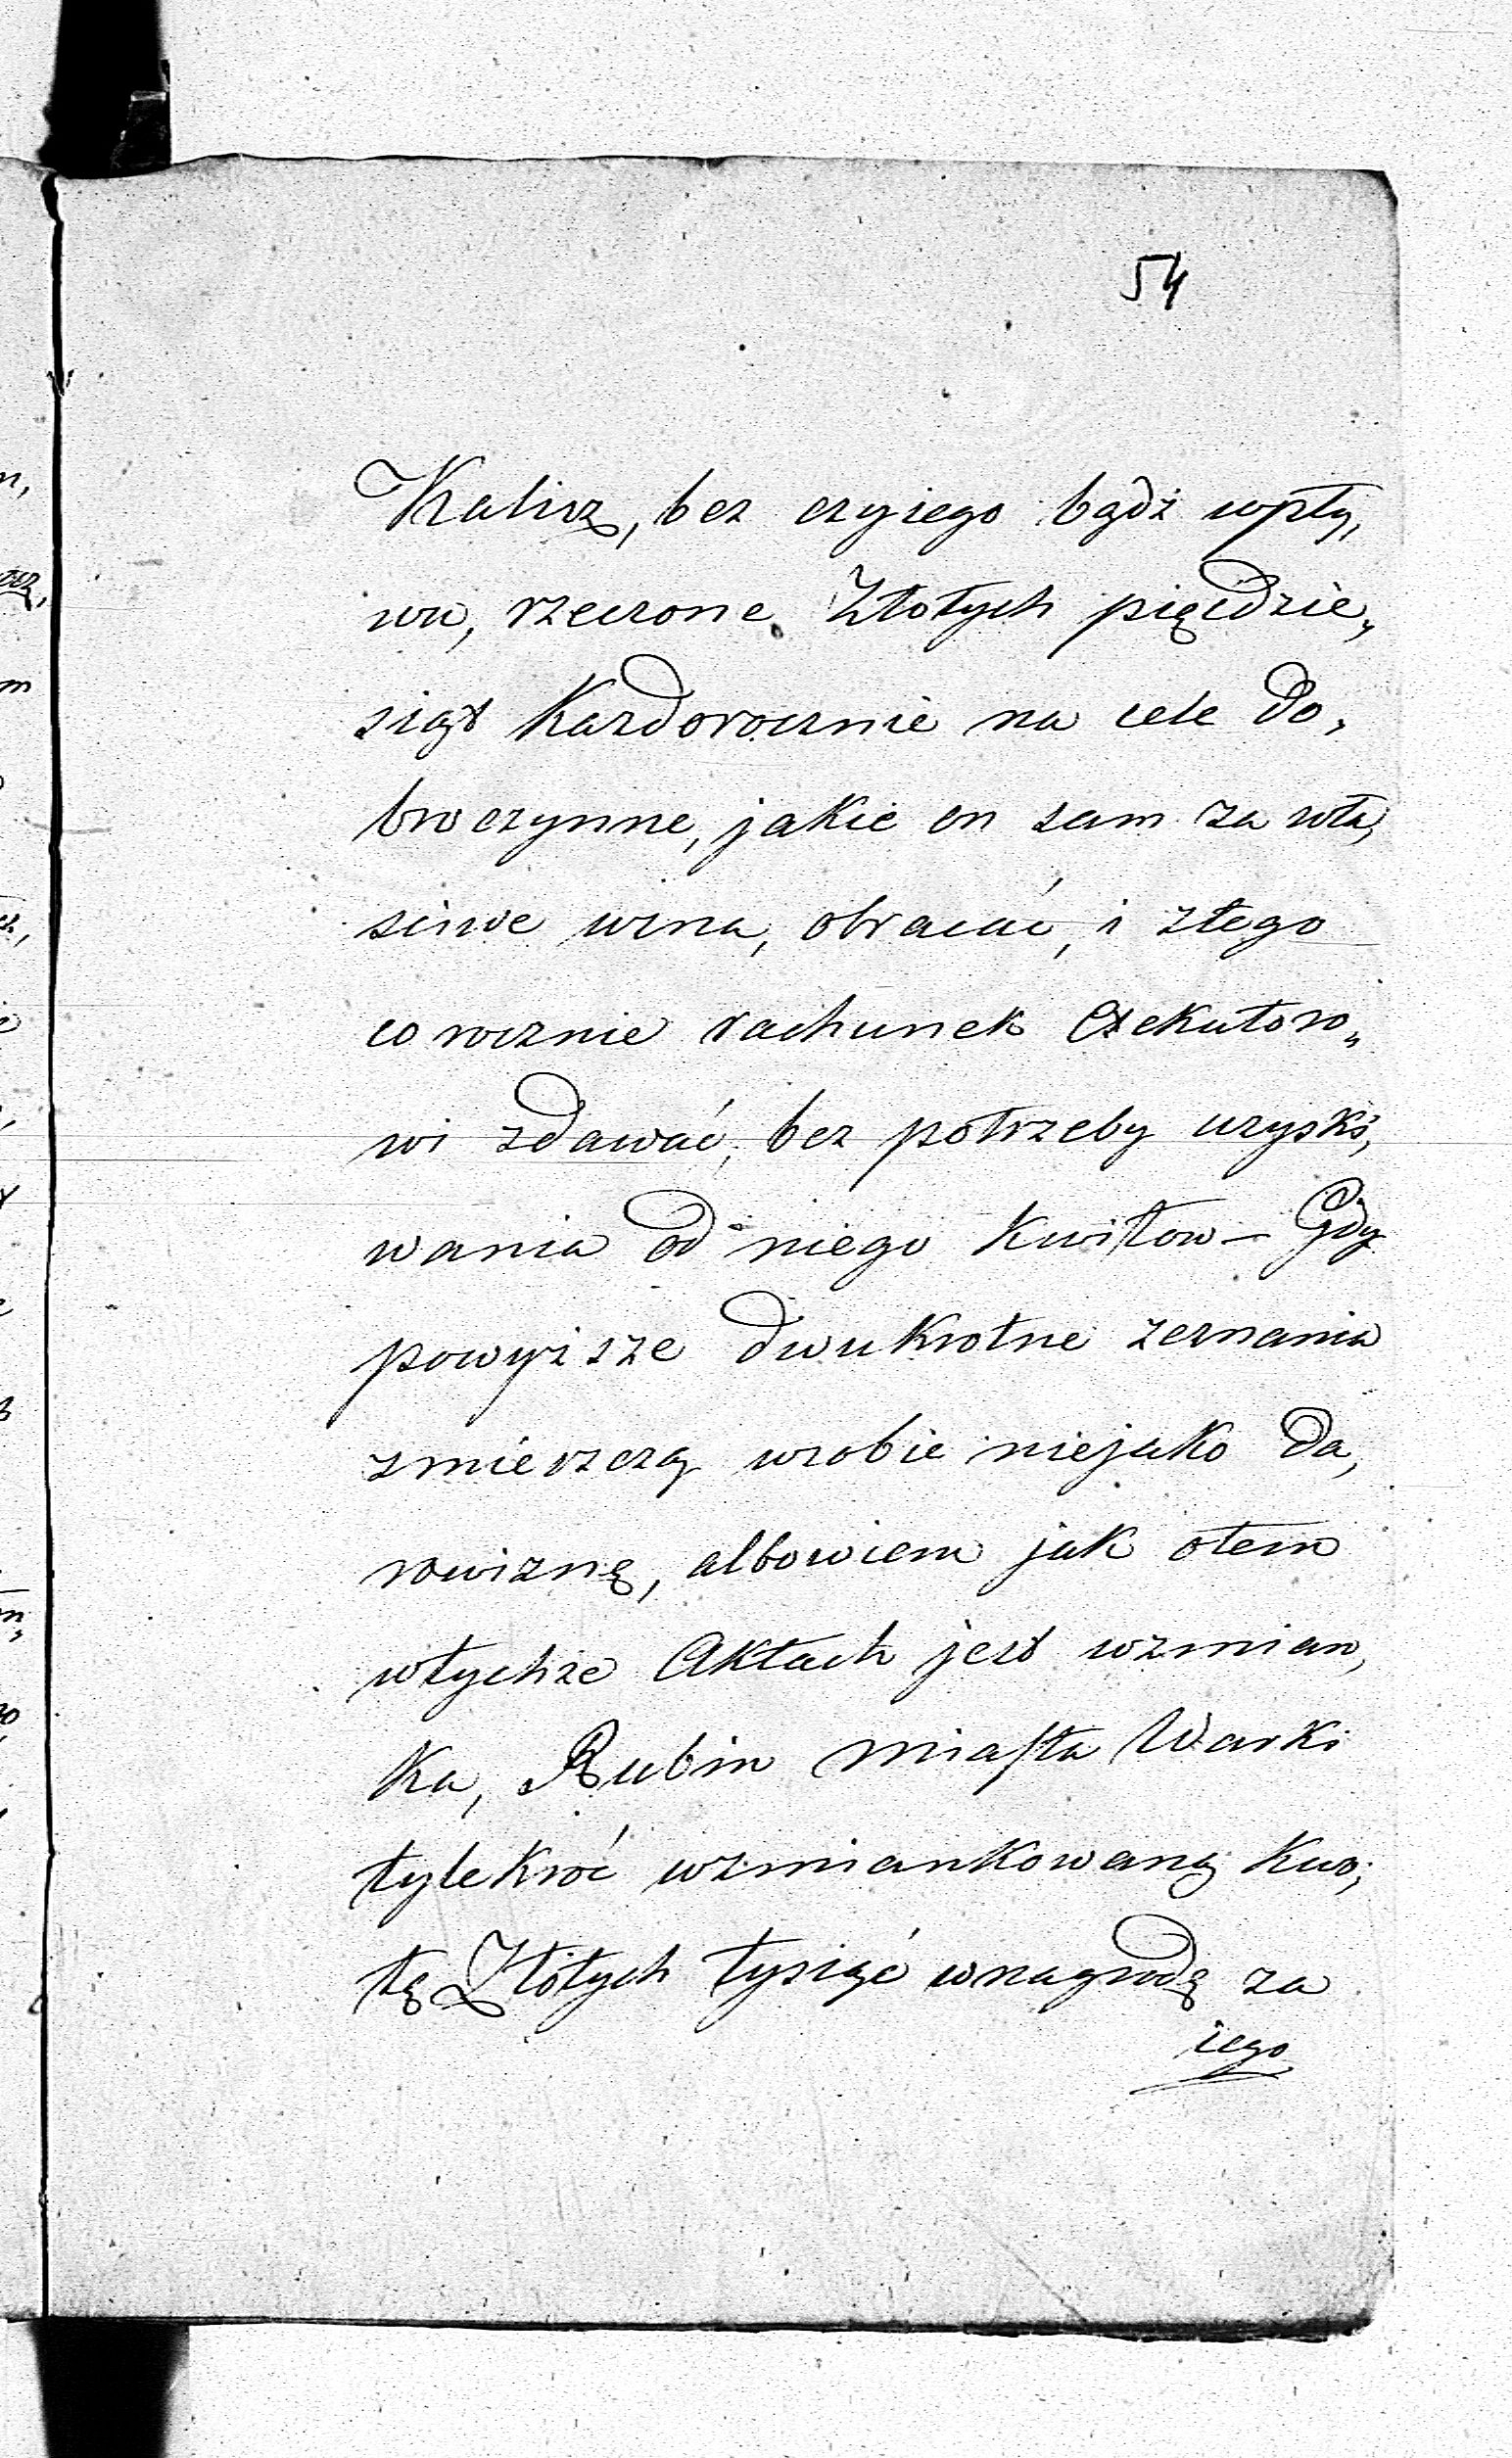 54
Kalisz, bez czyiego bądź wpły,
wu, rzeczone Złotych pięćdzie,
siąt Kazdorocznie na cele do,
broczynne, jakie on sam za wła,
sciwe uzna, obracać, i ztego
corocznie rachunek Exekutoro,,
wi zdawać, bez potrzeby uzyski,
wania od niego Kwitow – Gdy
powyższe dwukrotne zeznania
zmierzczą wsobie niejako da,
rowiznę, albowiem jak otem
wtychże Aktach jest wzmian,
Ka, Rubin miasta Warki
tylekroć wzmiankowaną Kwo,
tę Złotych tysiąć wnagrodę za
iego